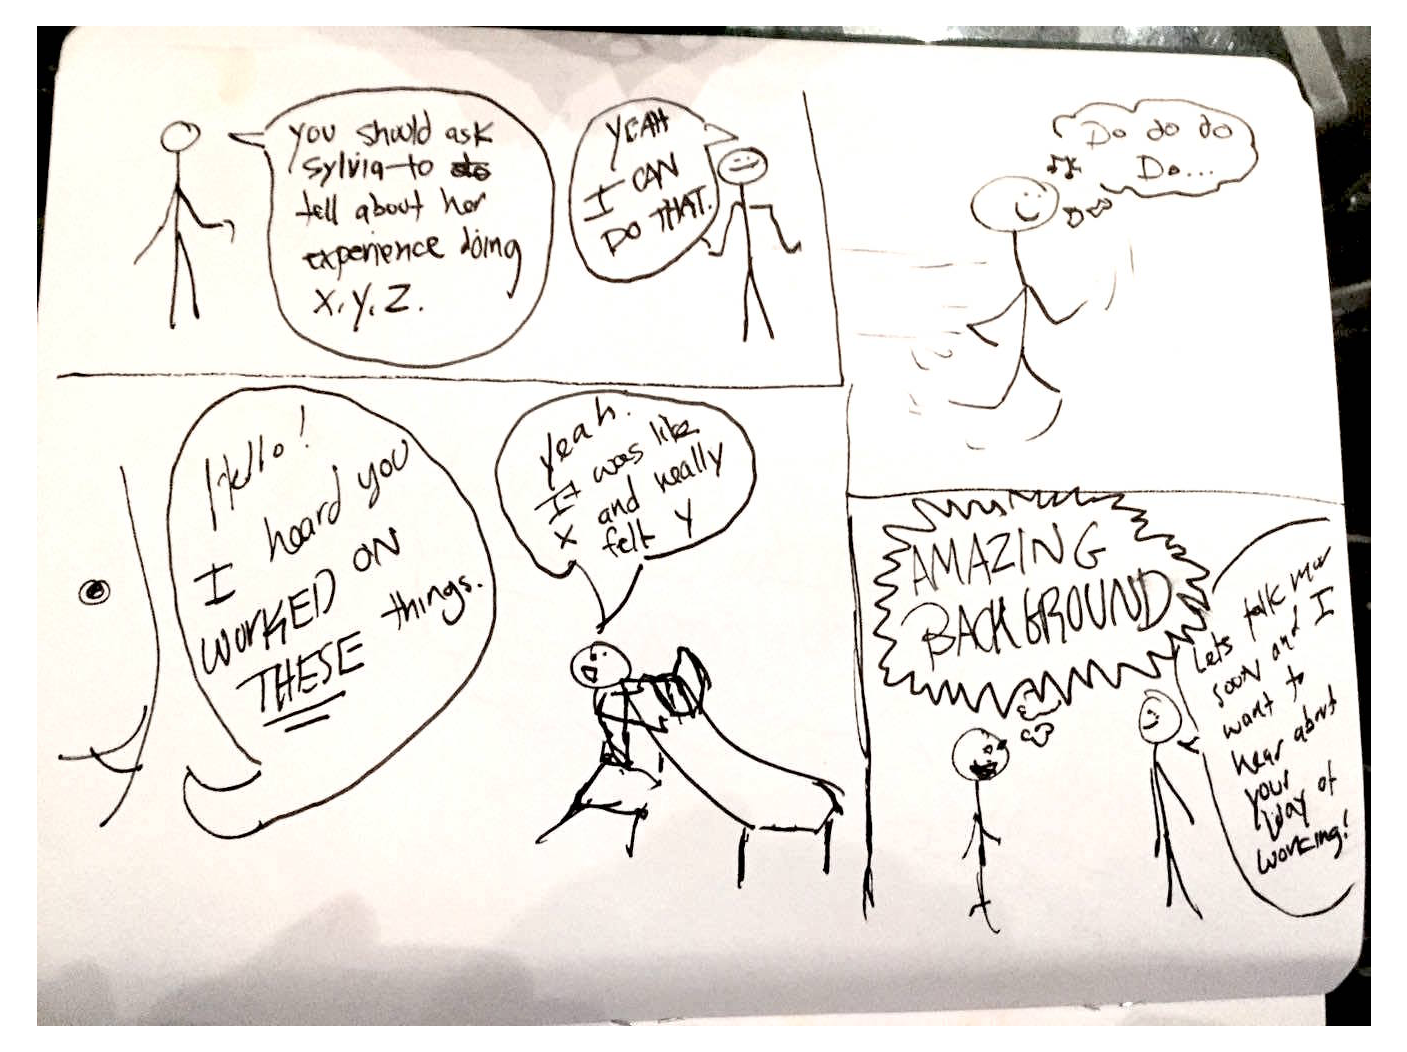 you should ask
sylvia to
tell about her
experience doing
x, y, z.
YEAH
I CAN
DO THAT.
Do do do
Do...
Hello!
I heard you
WORKED ON
THESE things.
Yeah.
It was like
x and really
felt y
AMAZING
BACKGROUND
Lets talk mor
soon and I
want to
hear about
your
day of
working!